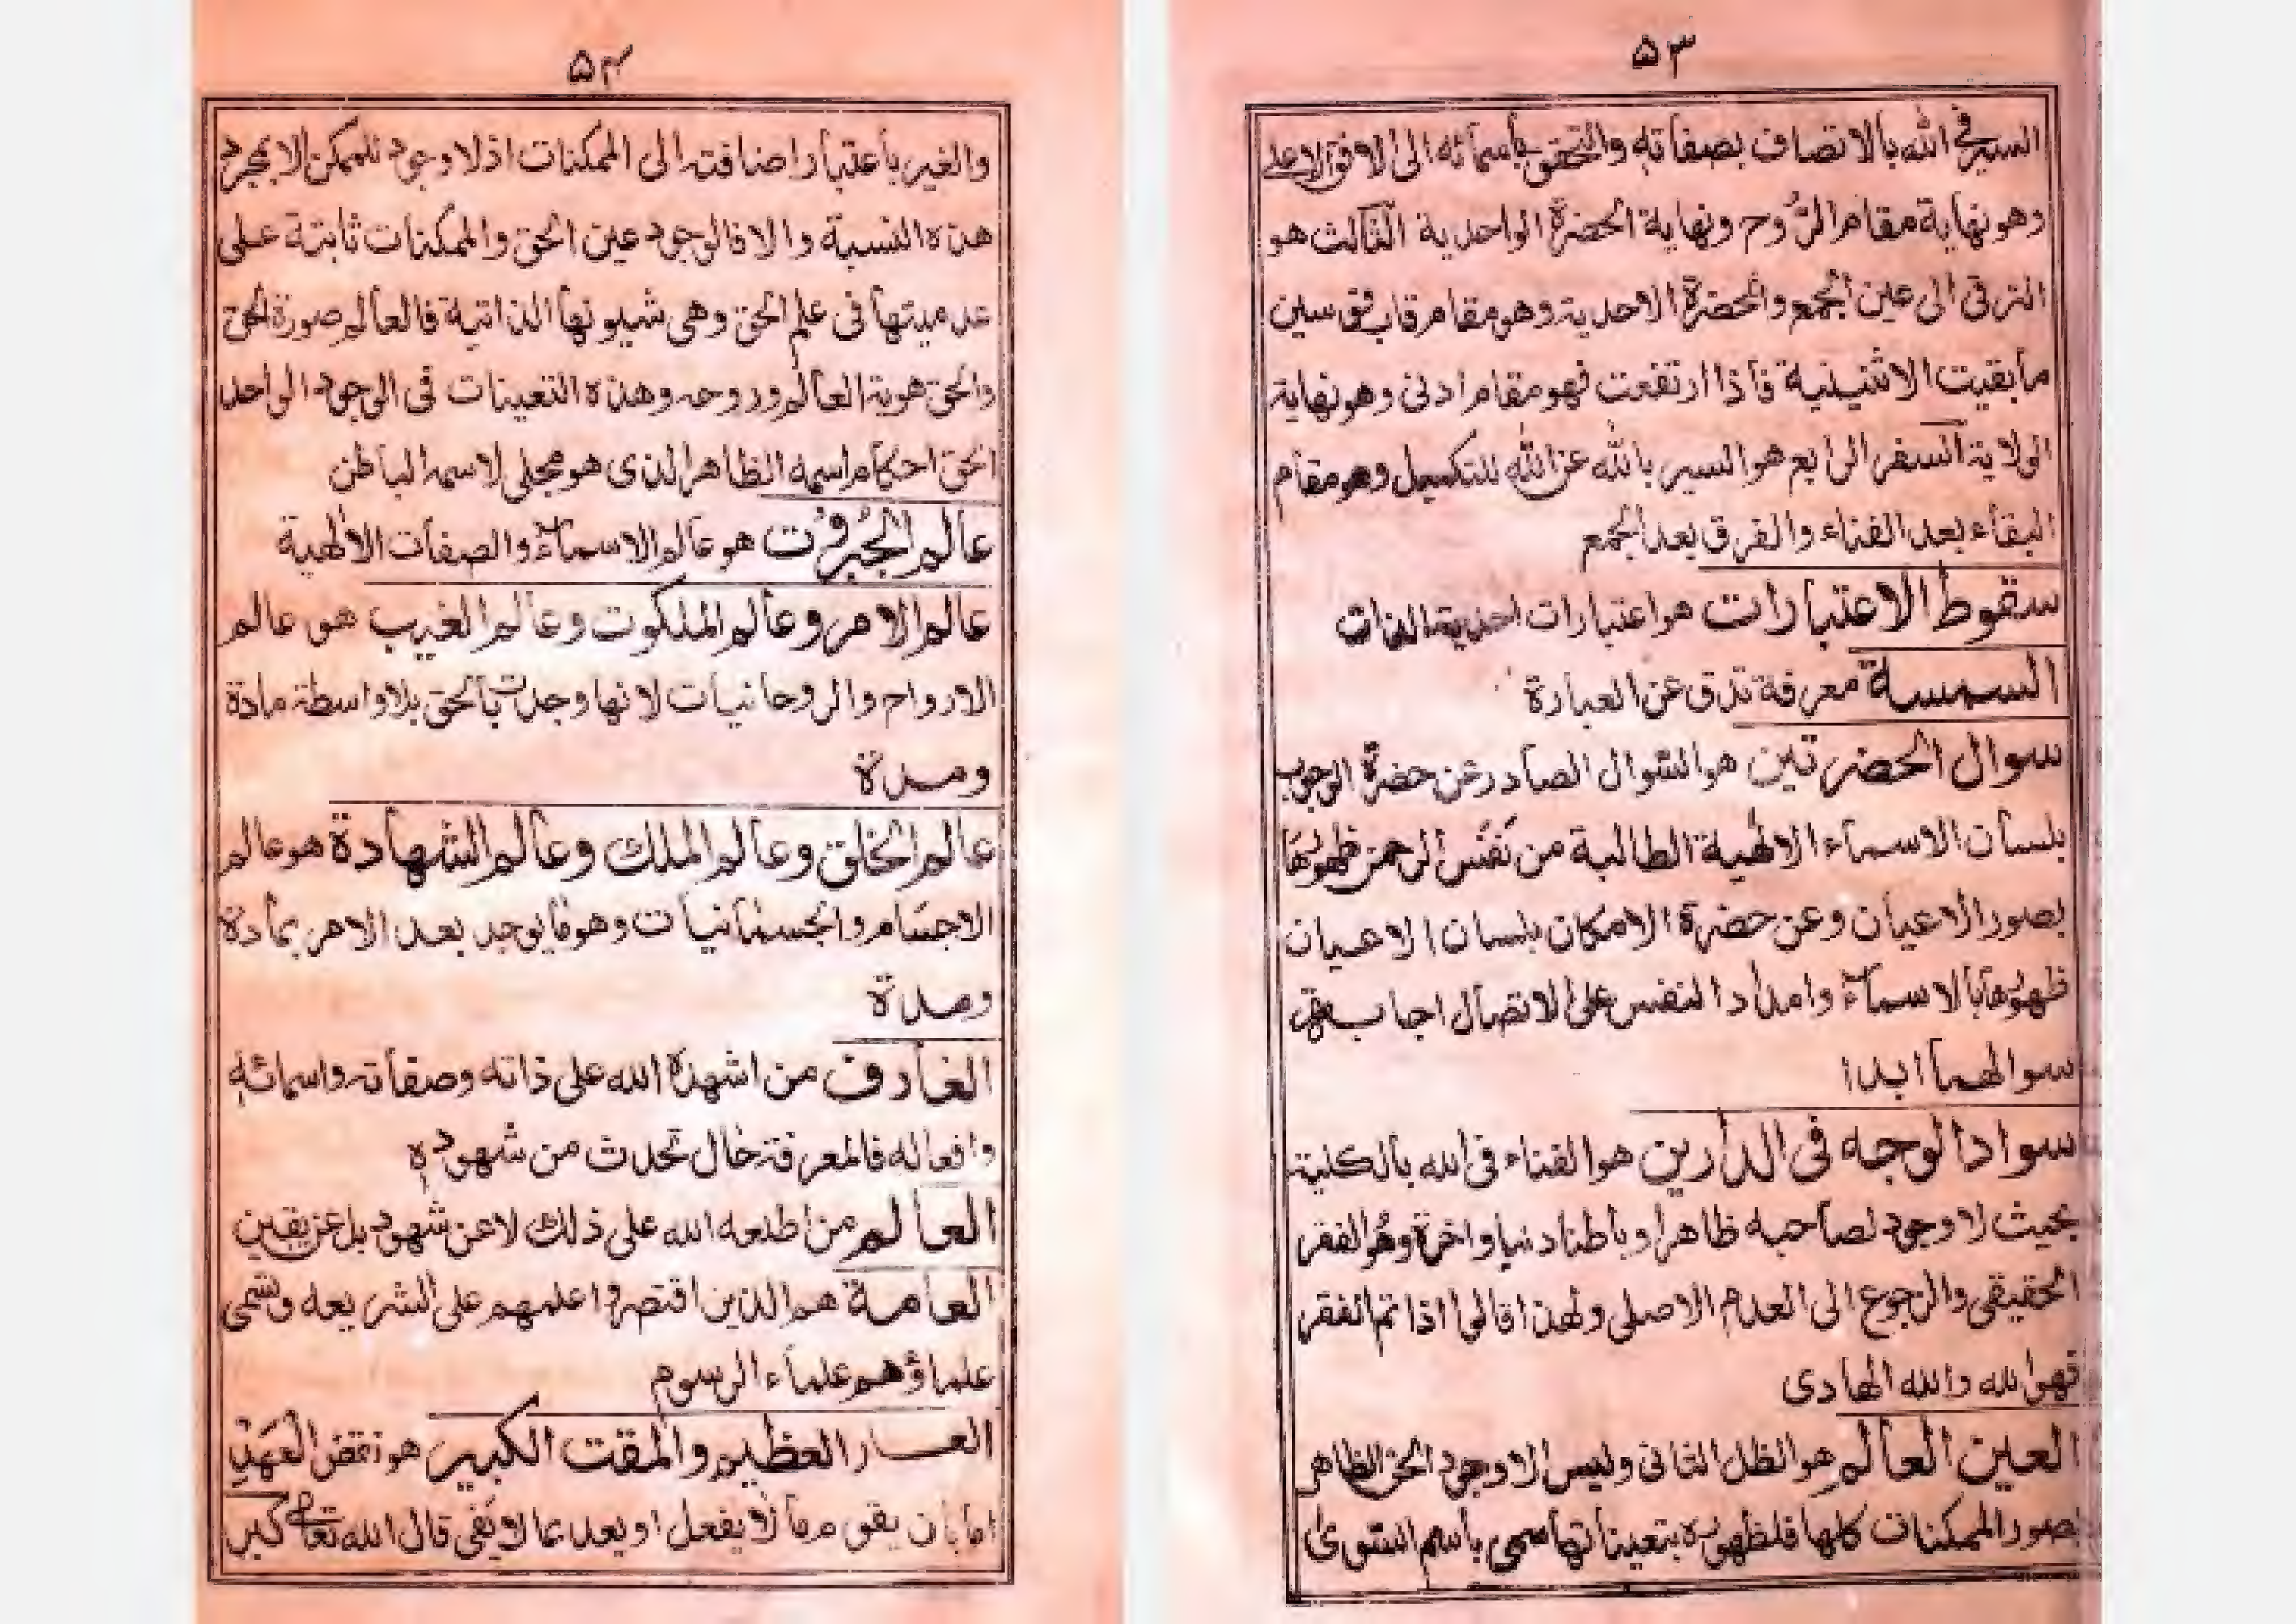 ۵۳
السير فى الله بالاتصاف بصفاته والتحقق بأسمائه الى الافق الاعلى
وهو نهاية مقام الرُّوح ونهاية الحضرة الواحدية الثالث هو
الترقى الى عين الجمع والحضرة الاحدية وهو مقام قاب قوسين
ما بقيت الاثنينية فاذا ارتفعت فهو مقام ادنى وهو نهاية
الولاية السفر الرابع هو السير بالله عن الله للتكميل وهو مقام
البقاء بعد الفناء والفرق بعد الجمع
سقوط الاعتبارات هو اعتبارات احدية الذات
السمسة معرفة تدق عن العبارة
سوال الحضرتين هو السوال الصادر عن حضرة الوجوب
بلسان الاسماء الالٰهية الطالبة من نَفَس الرحمن ظهورُهَا
بصور الاعيان وعن حضرة الامكان بلسان الاعيان
ظهورها بالاسماء وامداد النفس على الاتصال اجابة
سوالهما ابدا
سواد الوجه فى الدارين هو الفناء فى الله بالكلية
بحيث لا وجود لصاحبه ظاهرا وباطنا دنيا واخرة وهُو الفقر
الحقيقى والرجوع الى العدم الاصلى ولهذا قالوا اذا تم الفقر
فهو الله والله الهادى
العين العالم هو الظل الثانى وليس الا وجود الحق الظاهر
بصور الممكنات كلها فلظهوره بتعيناتها سمى باسم السوى
۵۴
والغير باعتبار اضافته الى الممكنات اذ لا وجود للممكن الا بمجرد
هذه النسبة والا فالوجود عين الحق والممكنات ثابتة على
عدميتها فى علم الحق وهى شيونها الذاتية فالعالم صورة الحق
والحق هوية العالم وروحه وهذه التعينات فى الوجود الواحد
الحق احكام اسمه الظاهر الذى هو مجلى لاسمه الباطن
عالم الجبرُوت هو عالم الاسماء والصفات الالٰهية
عالم الامر وعالم الملكوت وعالم الغيب هو عالم
الارواح والروحانيات لانها وجدت بالحق بلا واسطة مادة
ومدة
عالم الخلق وعالم الملك وعالم الشهادة هو عالم
الاجسام والجسمانيات وهو ما يوجد بعد الامر بمادة
ومدة
العارف من اشهده الله على ذاته وصفاته واسمائه
وافعاله فالمعرفة حال تحدث من شهوده
العالم من اطلعه الله على ذلك لا عن شهود بل عن يقين
العامة هم الذين اقتصروا علمهم على الشريعه وتسمى
علماؤهم علماء الرسوم
العار العظيم والمقت الكبير هو نقض العَهْد
اما بان يقول ما لا يفعل او يعد بما لا يفى قال الله تعالى كبر